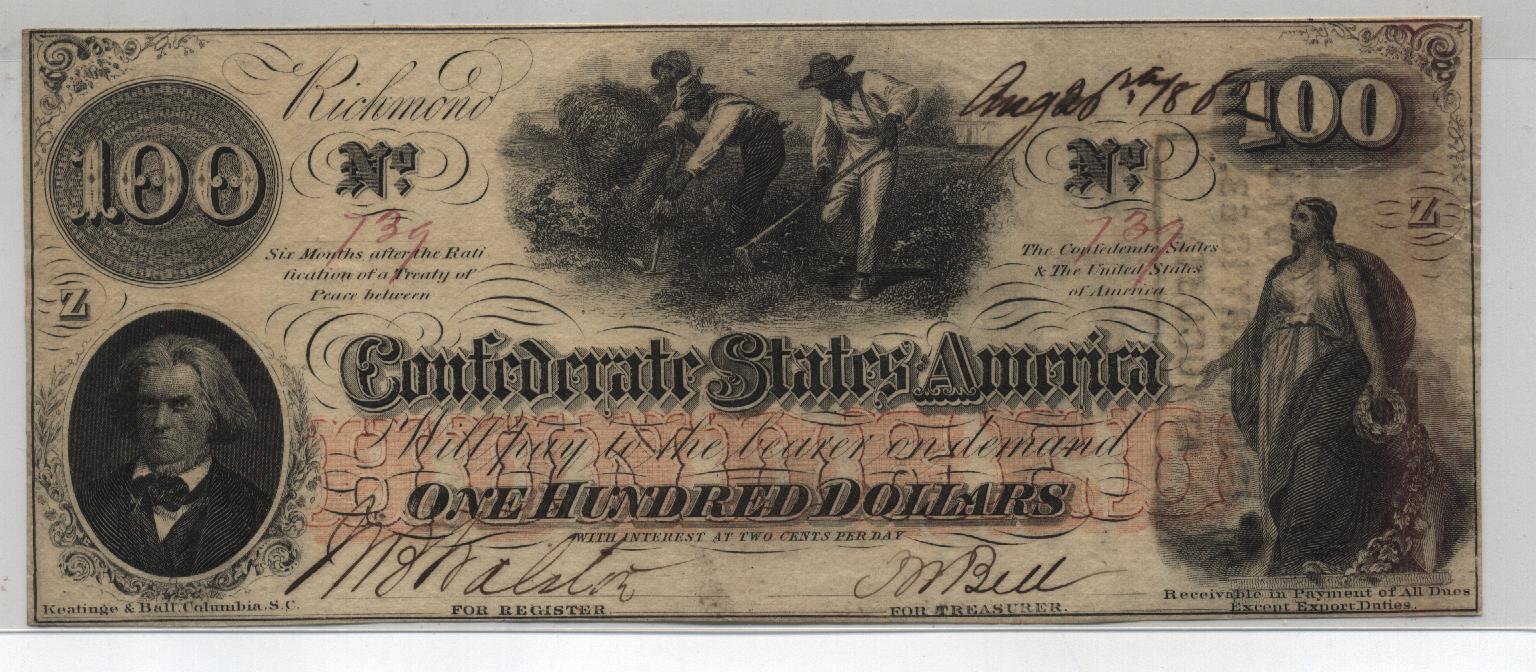 Richmond
Aug 26th 1862
100
100
No.
No.
739
739
Six Months after the Rati
fication of a Treaty of
Peace between
The Confederate States
& The United States
of America
Z
Z
Confederate States America
Will pay to the bearer on demand
HUNDRED
ONE HUNDRED DOLLARS
WITH INTEREST AT TWO CENTS PER DAY
Bell
Keatinge & Ball, Columbia, S.C.
FOR REGISTER
FOR TREASURER.
Receivable in Payment of All Dues
Except Export Duties.